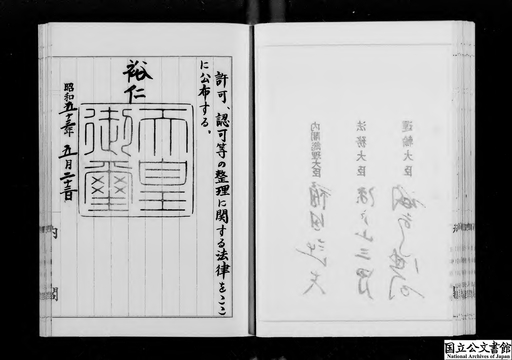 運輸大臣
法務大臣 瀬戸山三男
内閣総理大臣 福田赳夫
許可、認可等の整理に関する法律をここ
に公布する。
裕仁
天皇
御璽
昭和五十三年五月二十三日
内閣
国立公文書館
National Archives of Japan